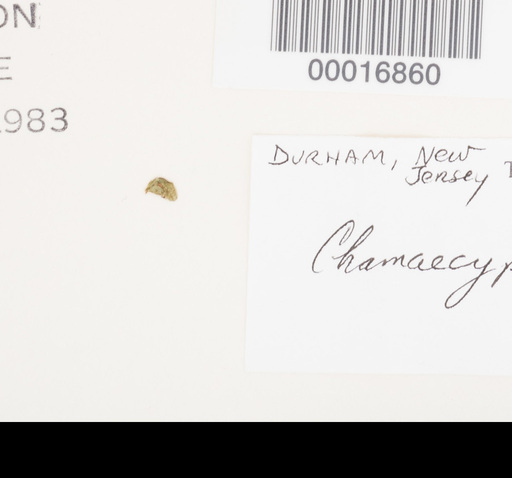 ON
E
1983
00016860
DURHAM, New
Jersey
Chamaecyp